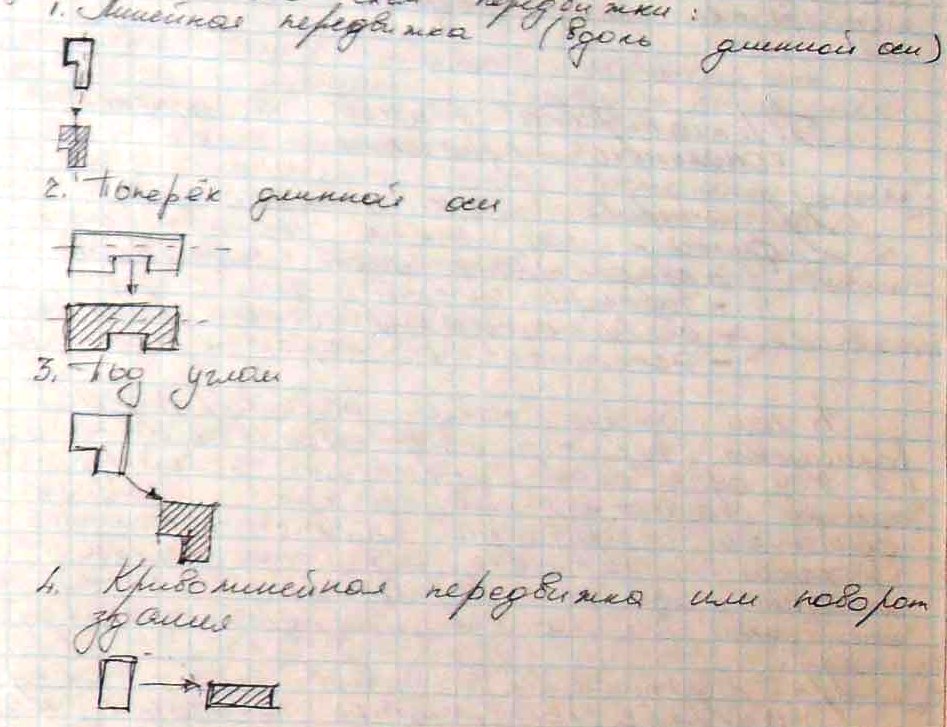 передвижки:
1. Линейная передвижка (вдоль длинной оси)
2. Поперёк длинной оси
3. Под углом
4. Криволинейная передвижка или поворот
здания